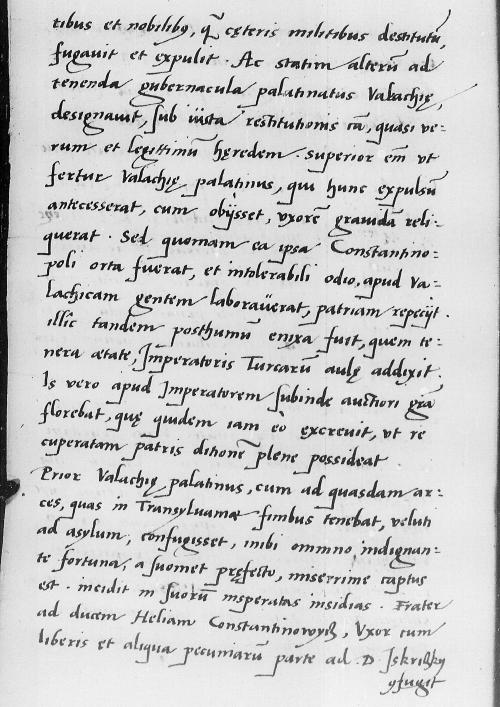 tibus et nobilibꝯ, q̃ cęteris militibus destitutũ,
fugauit et expulit. Ac statim alterũ ad
tenenda gubernacula palatinatus Valachię,
designauit, sub iusta restitutionis cã, quasi ve-
rum et legittimũ hęredem. Superior em̃ vt
fertur Valachię palatinus, qui hunc expulsũ
antecesserat, cum obijsset, vxorẽ grauidã reli-
querat. Sed quoniam ea ipsa Constantino-
poli orta fuerat, et intolerabili odio, apud Va-
lachicam gentem laborauerat, patriam repecijt.
illic tandem posthumũ enixa fuit, quem te-
nera ætate, Imperatoris Turcarũ aulę addixit.
Is vero apud Imperatorem subinde authori grã
florebat, quę quidem iam eò excreuit, vt re
cuperatam patris ditionẽ plene possideat
Prior Valachię palatinus, cum ad quasdam ar-
ces, quas in Transyluaniæ finibus tenebat, veluti
ad asylum, confugisset, inibi omnino indignan-
te fortuna, a suomet pręfecto, miserrime captus
est. incidit in suorũ insperatas insidias. Frater
ad ducem Heliam Constantinowyß, Vxor cum
liberis et aliqua pecuniarũ parte ad D. Iskrißky
ꝯfugit